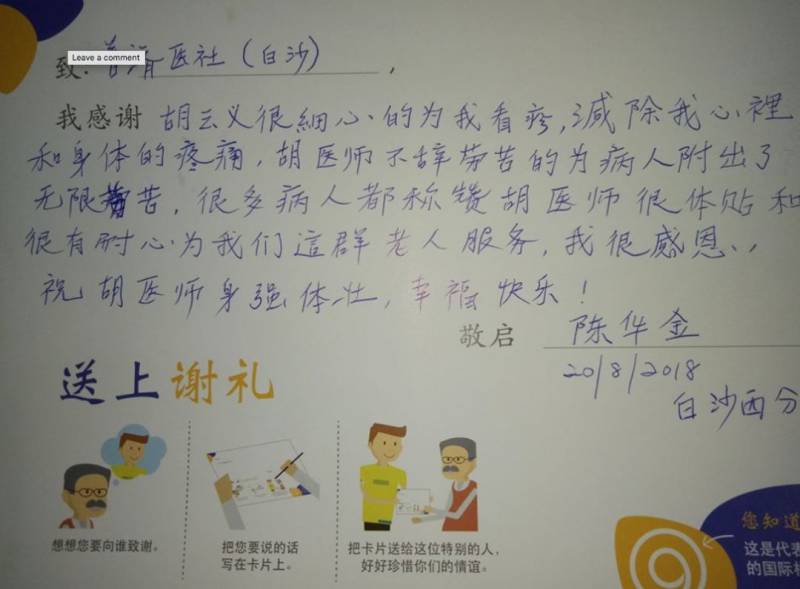 致: 医社 (白沙) ,
Leave a comment
我感谢 胡云义很細心的为我看疼, 減除我心裡
和身体的疼痛, 胡医师不辞劳苦的为病人附出了
无限劳苦, 很多病人都称赞胡医师很体贴和
很有耐心为我们這群老人服务, 我很感恩、,
祝胡医师身强体壮, 幸福快乐!
敬启 陈华金
20/8/2018
白沙西分
送上谢礼
想想您要向谁致谢。
把您要说的话
写在卡片上。
把卡片送给这位特别的人,
好好珍惜你们的情谊。
您知道
这是代表
的国际